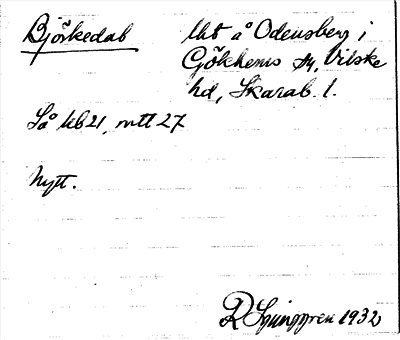 Björkedal
Uht å Odensberg i
Gökhems sn, Vilske
hd, Skarab. l.
Så kb 21, mtt 27
Nytt.
R Ljunggren 1932